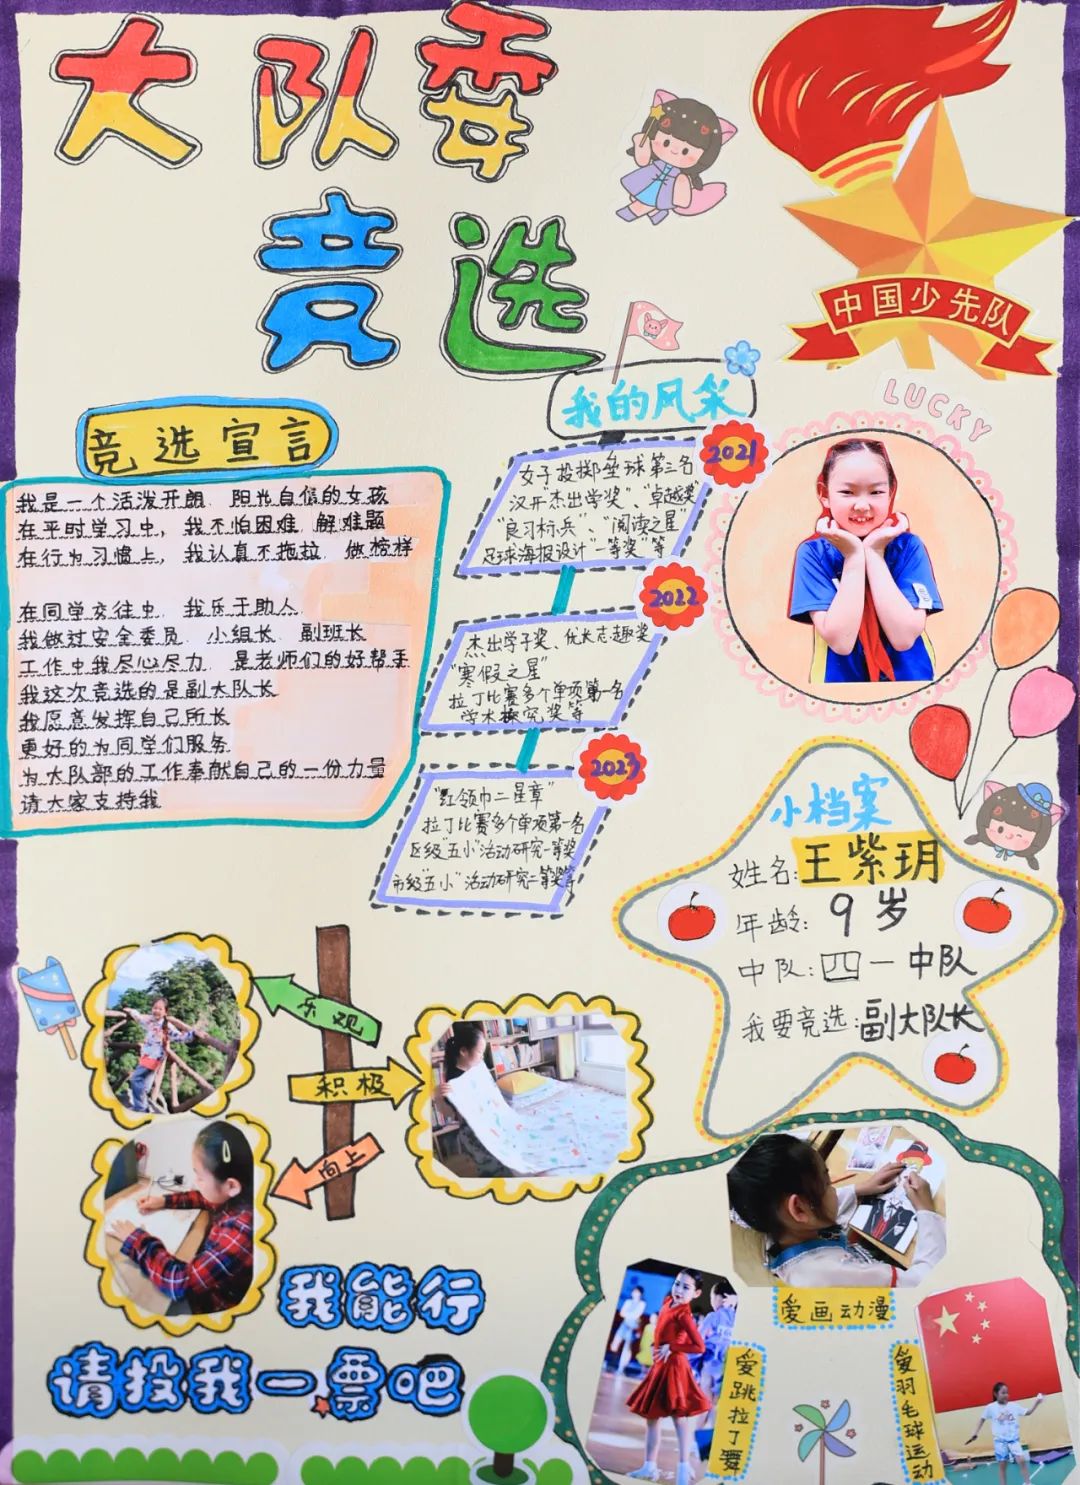 大队委
竞选
中国少先队
LUCKY
竞选宣言
我是一个活泼开朗 阳光自信的女孩
在平时学习中，我不怕困难 解难题
在行为习惯上，我认真不拖拉 做榜样
在同学交往中 我乐于助人
我做过安全委员 小组长 副班长
工作中我尽心尽力 是老师们的好帮手
我这次竞选的是副大队长
我愿意发挥自己所长
更好的为同学们服务
为大队部的工作奉献自己的一份力量
请大家支持我
我的风采
2021
女子投掷垒球第三名
汉开杰出学奖"、"卓越奖"
"良习标兵"、"阅读之星"
足球海报设计"一等奖"等
2022
杰出学子奖、优长志趣奖
"寒假之星"
拉丁比赛多个单项第一名
学术探究奖等
2023
"红领巾二星章"
拉丁比赛多个单项第一名
区级"五小"活动研究一等奖
市级"五小"活动研究二等奖等
小档案
姓名:王紫玥
年龄: 9岁
中队:四一中队
我要竞选:副大队长
乐观
积极
向上
我能行
请投我一票吧
爱画动漫
爱跳拉丁舞
爱羽毛球运动